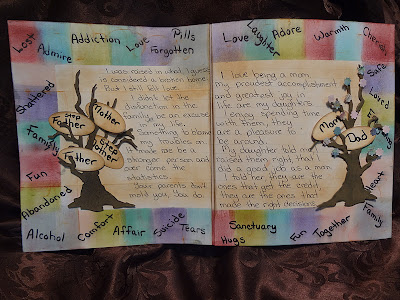 Lost
Admire
Addiction
Love
Pills
Forgotten
Shattered
Family
Fun
Abandoned
Alcohol
Comfort
Affair
Suicide
Tears
I was raised in what I guess
is considered a broken home.
But I still felt love.
I didn't let the
disfunction in the
family be an excuse
in my life.
Something to blame
my troubles on.
It made me be a
stronger person and
over come the
statistics.
Your parents don't
mold you, You do.
Mother
Step
Father
Step
Mother
Father
Love
Laughter
Adore
Warmth
Cherish
Safe
Lord
Heart
Family
Together
Fun
Sanctuary
Hugs
I love being a mom,
my proudest accomplishment
and greatest joy in
life are my daughters.
I enjoy spending time
with them, they
are a pleasure to
be around.
My daughter told me I
raised them right, that I
did a good job as a mom.
I told her they are the
ones that get the credit,
they are the ones that
made the right decisions.
Mom
Dad